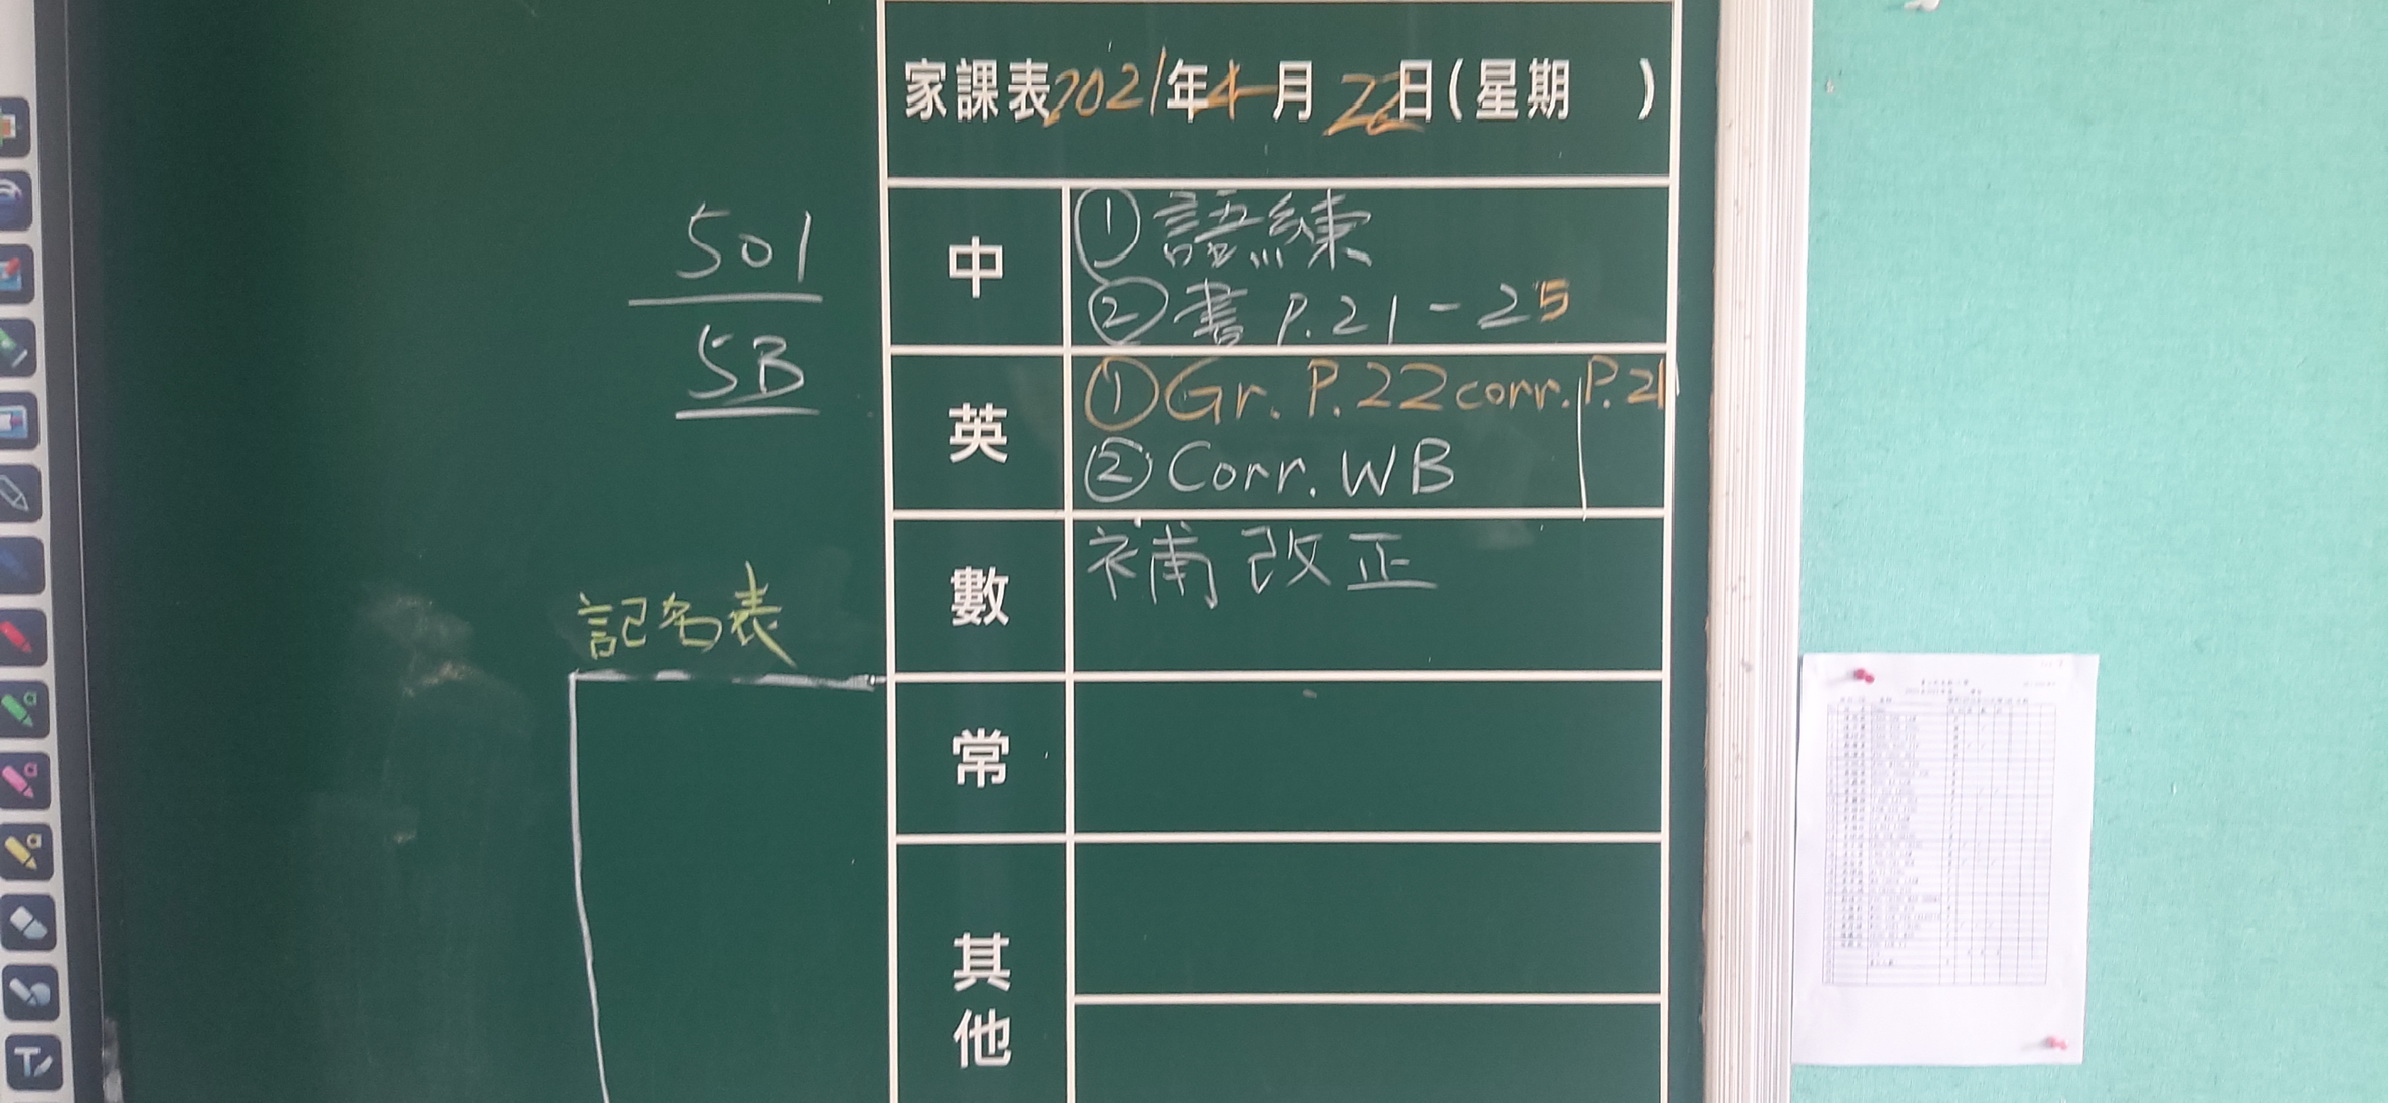 家課表2021年4月22日(星期 )
501
5B
中
①語練
②書 P.21-25
英
①Gr. P.22 corr. P.21
②Corr. WB
數
補改正
記名表
常
其他